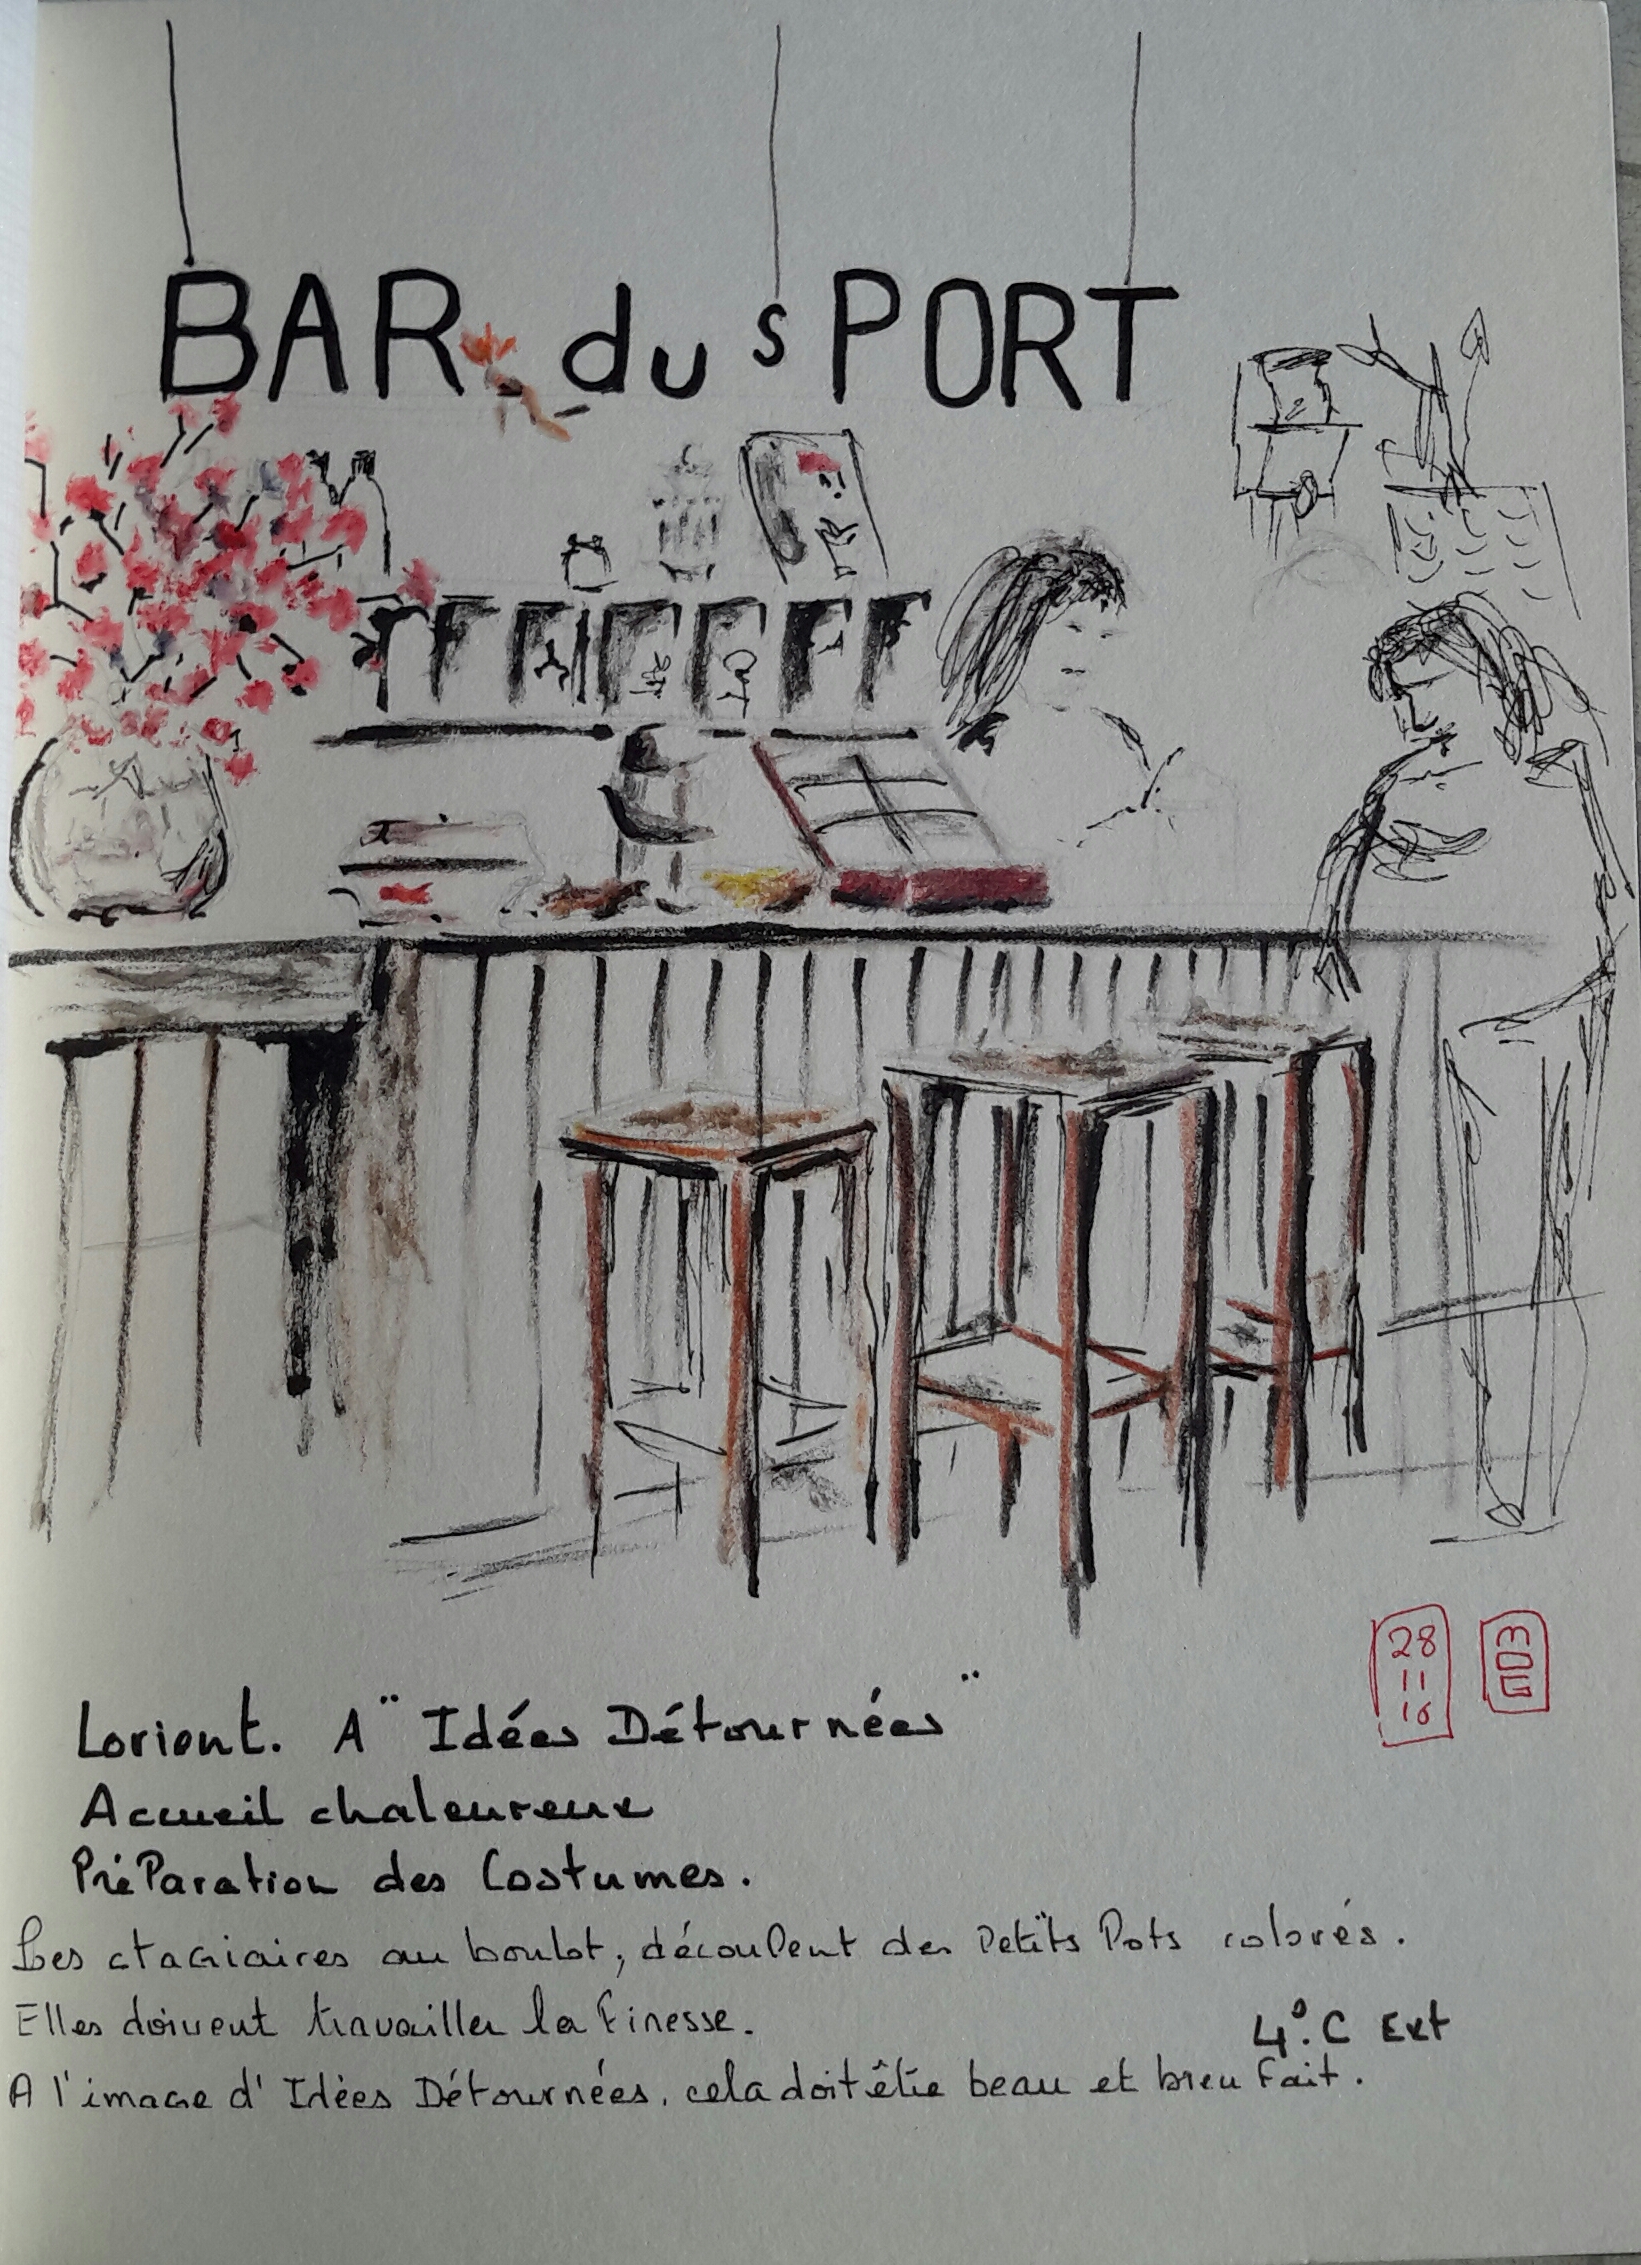 BAR du sPORT
28
11
16
MOG
Lorient. A "Idées Détournées"
Accueil chaleureux
Préparation des Costumes.
Les stagiaires au boulot, découpent des petits Pots colorés.
Elles doivent travailler la finesse.
4°.C Ext
A l'image d'Idées Détournées, cela doit être beau et bien fait.